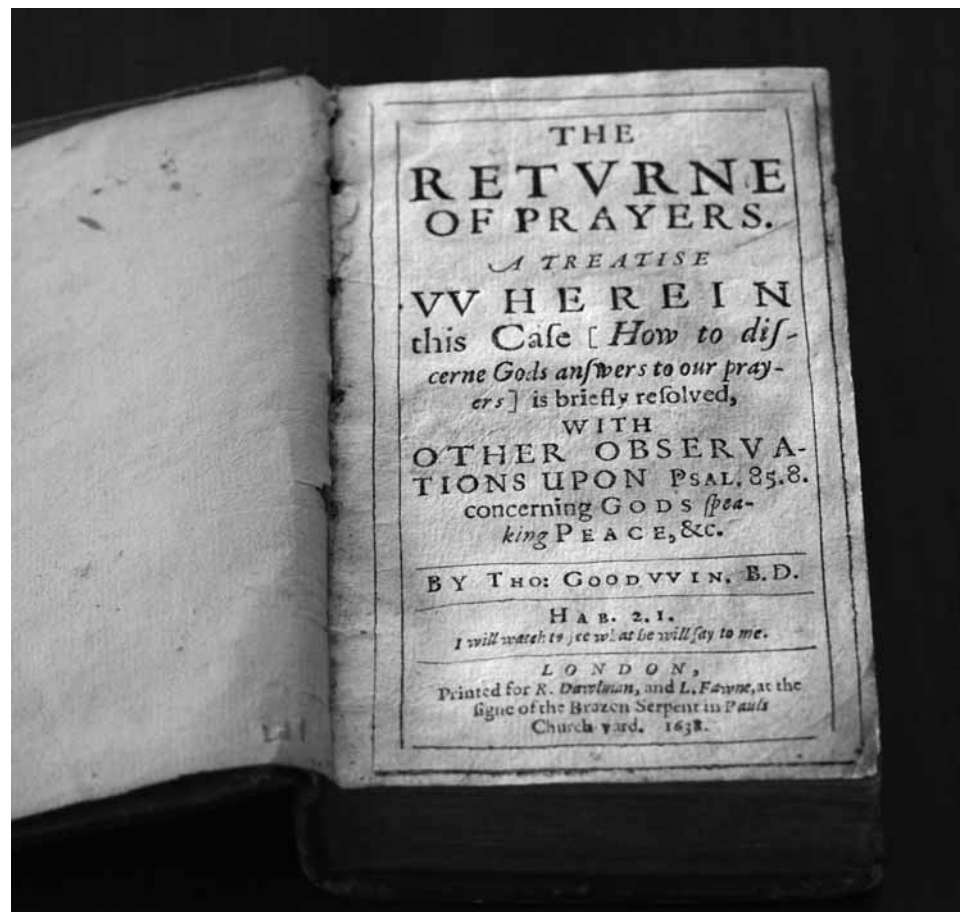 THE
RETVRNE
OF PRAYERS.
A TREATISE
VVHEREIN
this Caſe [How to diſ-
cerne Gods anſwers to our pray-
ers] is briefly reſolved,
WITH
OTHER OBSERVA-
TIONS UPON PSAL. 85.8.
concerning GODS ſpea-
king PEACE, &c.
BY THO: GOODVVIN. B.D.
HAB. 2.1.
I will watch to ſee what he will ſay to me.
LONDON,
Printed for R. Dawlman, and L. Fawne, at the
ſigne of the Brazen Serpent in Pauls
Church-yard. 1638.